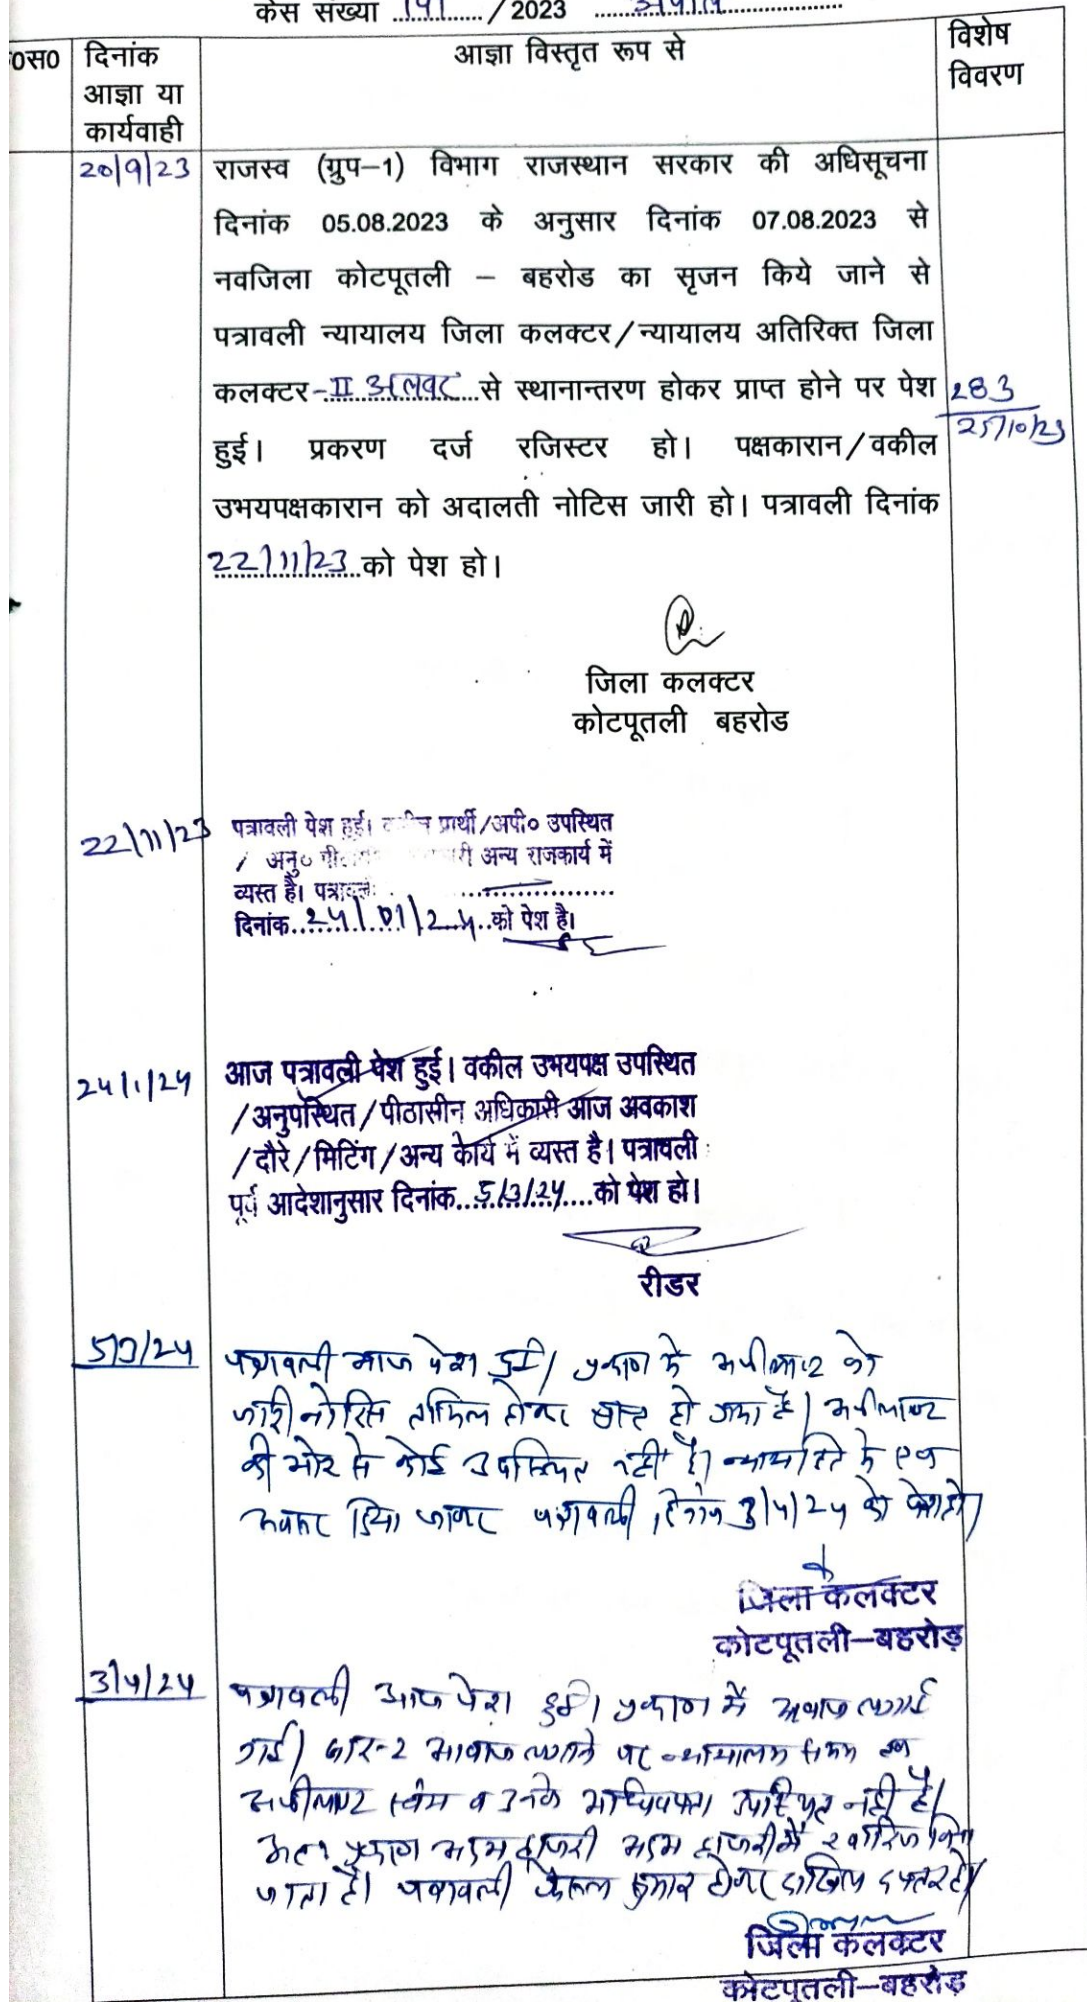 केस संख्या ............ / 2023 अपील
०स० दिनांक आज्ञा या कार्यवाही
आज्ञा विस्तृत रूप से
विशेष विवरण
20/9/23 राजस्व (ग्रुप–1) विभाग राजस्थान सरकार की अधिसूचना
दिनांक 05.08.2023 के अनुसार दिनांक 07.08.2023 से
नवजिला कोटपूतली – बहरोड का सृजन किये जाने से
पत्रावली न्यायालय जिला कलक्टर/न्यायालय अतिरिक्त जिला
कलक्टर-II अलवर से स्थानान्तरण होकर प्राप्त होने पर पेश
283
25/10/23
हुई। प्रकरण दर्ज रजिस्टर हो। पक्षकारान/वकील
उभयपक्षकारान को अदालती नोटिस जारी हो। पत्रावली दिनांक
22/11/23 को पेश हो।
जिला कलक्टर
कोटपूतली बहरोड
22/11/23 पत्रावली पेश हुई। प्रार्थी/अपी० उपस्थित
/ अनु० अन्य राजकार्य में
व्यस्त है। पत्रावली
दिनांक..24/01/24..को पेश है।
24/1/24 आज पत्रावली पेश हुई। वकील उभयपक्ष उपस्थित
/अनुपस्थित/पीठासीन अधिकारी आज अवकाश
/दौरे/मिटिंग/अन्य कार्य में व्यस्त है। पत्रावली
पूर्व आदेशानुसार दिनांक..5/3/24..को पेश हो।
रीडर
5/3/24 पत्रावली आज पेश हुई। प्रकरण में अपीलान्ट को
जारी नोटिस तामिल होकर प्राप्त हो गया है। अपीलान्ट
की ओर से कोई उपस्थित नहीं है। न्यायहित में एक
अवसर दिया जाकर पत्रावली दिनांक 3/4/24 को पेश हो।
जिला कलक्टर
कोटपूतली–बहरोड़
3/4/24 पत्रावली आज पेश हुई। प्रकरण में आवाज लगाई
गई। बार-2 आवाज लगाने पर न्यायालय समय तक
अपीलान्ट स्वयं व उनके अधिवक्ता उपस्थित नहीं है।
अतः प्रकरण अदम हाजरी अदम हाजरी में खारिज किया
जाता है। पत्रावली फैसल शुमार होकर दाखिल दफ्तर हो।
जिला कलक्टर
कोटपूतली–बहरोड़